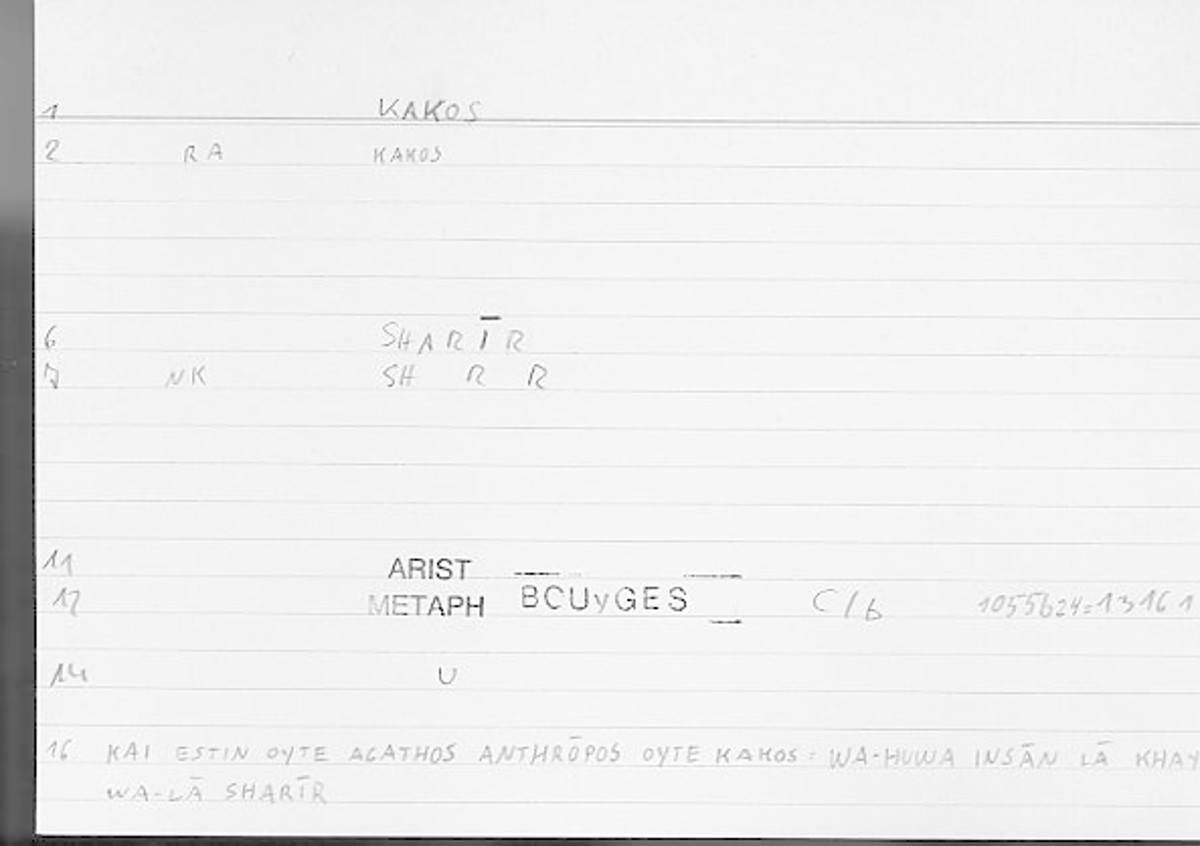 1 KAKOS
2 RA KAKOS
6 SHARĪR
7 NK SH R R
11 ARIST
12 METAPH BCUyGES C/b 1055b24=1316 1
14 U
16 KAI ESTIN OYTE AGATHOS ANTHRŌPOS OYTE KAKOS = WA-HUWA INSĀN LĀ KHAY
WA-LĀ SHARĪR